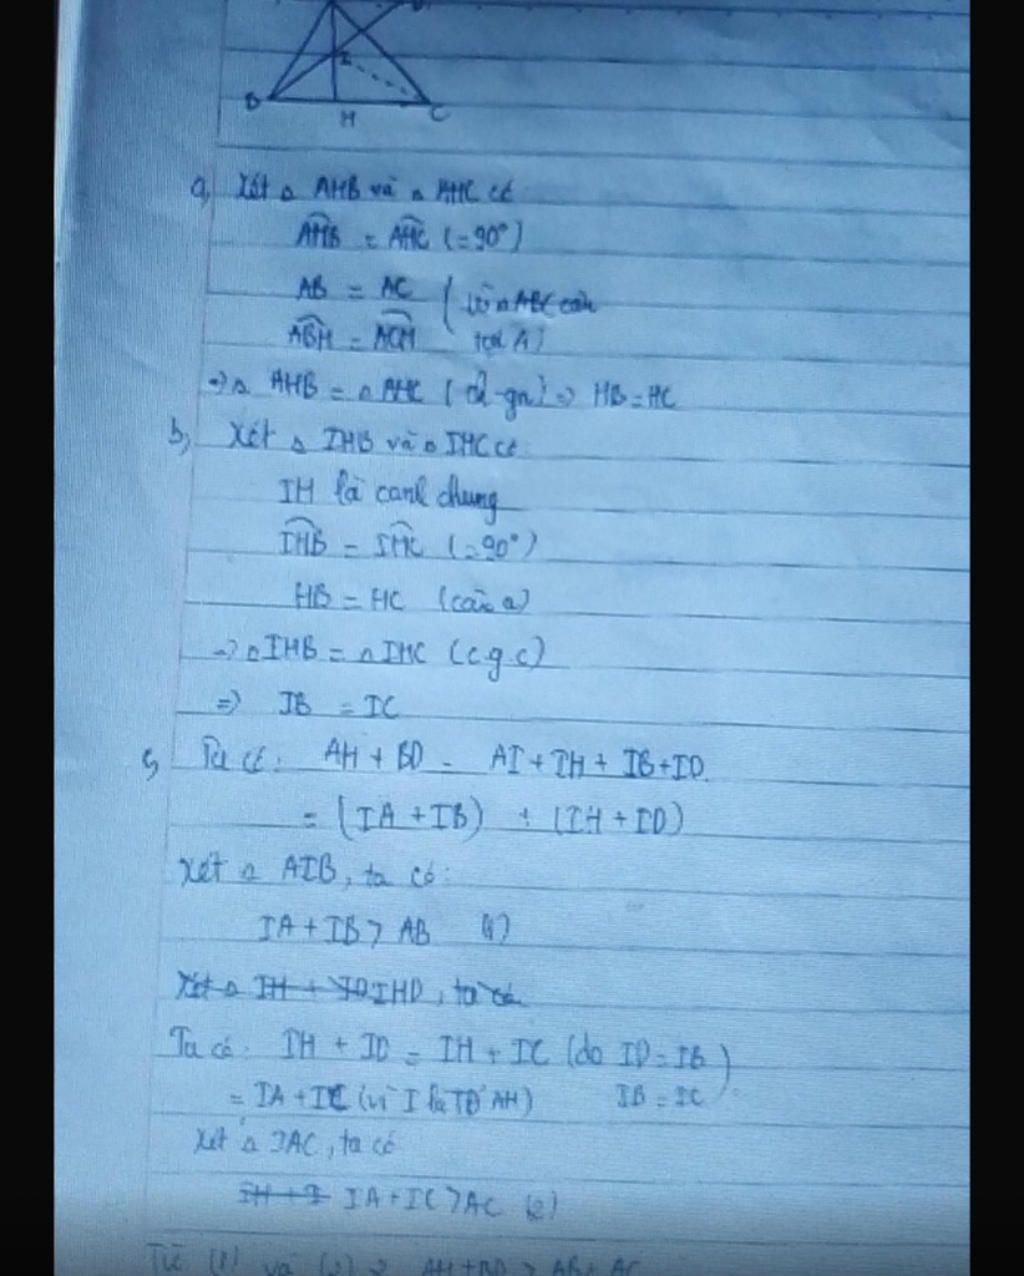 I
B
H
C
a, Xét △ AHB và △ AHC có
AHB = AHC (=90°)
AB = AC ( vì △ABC cân
ABH = ACH tại A)
=> △ AHB = △ AHC ( ch-gn) => HB = HC
b, Xét △ IHB và △ IHC có
IH là cạnh chung
IHB = IHC (=90°)
HB = HC (câu a)
=> △ IHB = △ IHC (c.g.c)
=> IB = IC
c, Ta có: AH + BD = AI + IH + IB + ID
= (IA + IB) + (IH + ID)
Xét △ AIB, ta có:
IA + IB > AB (1)
Xét △ IH + ID IHD, ta có
Ta có: IH + ID = IH + IC (do ID = IB
= IA + IC (vì I là TĐ AH) IB = IC)
Xét △ IAC, ta có
IH + I IA + IC > AC (2)
Từ (1) và (2) => AH + BD > AB + AC